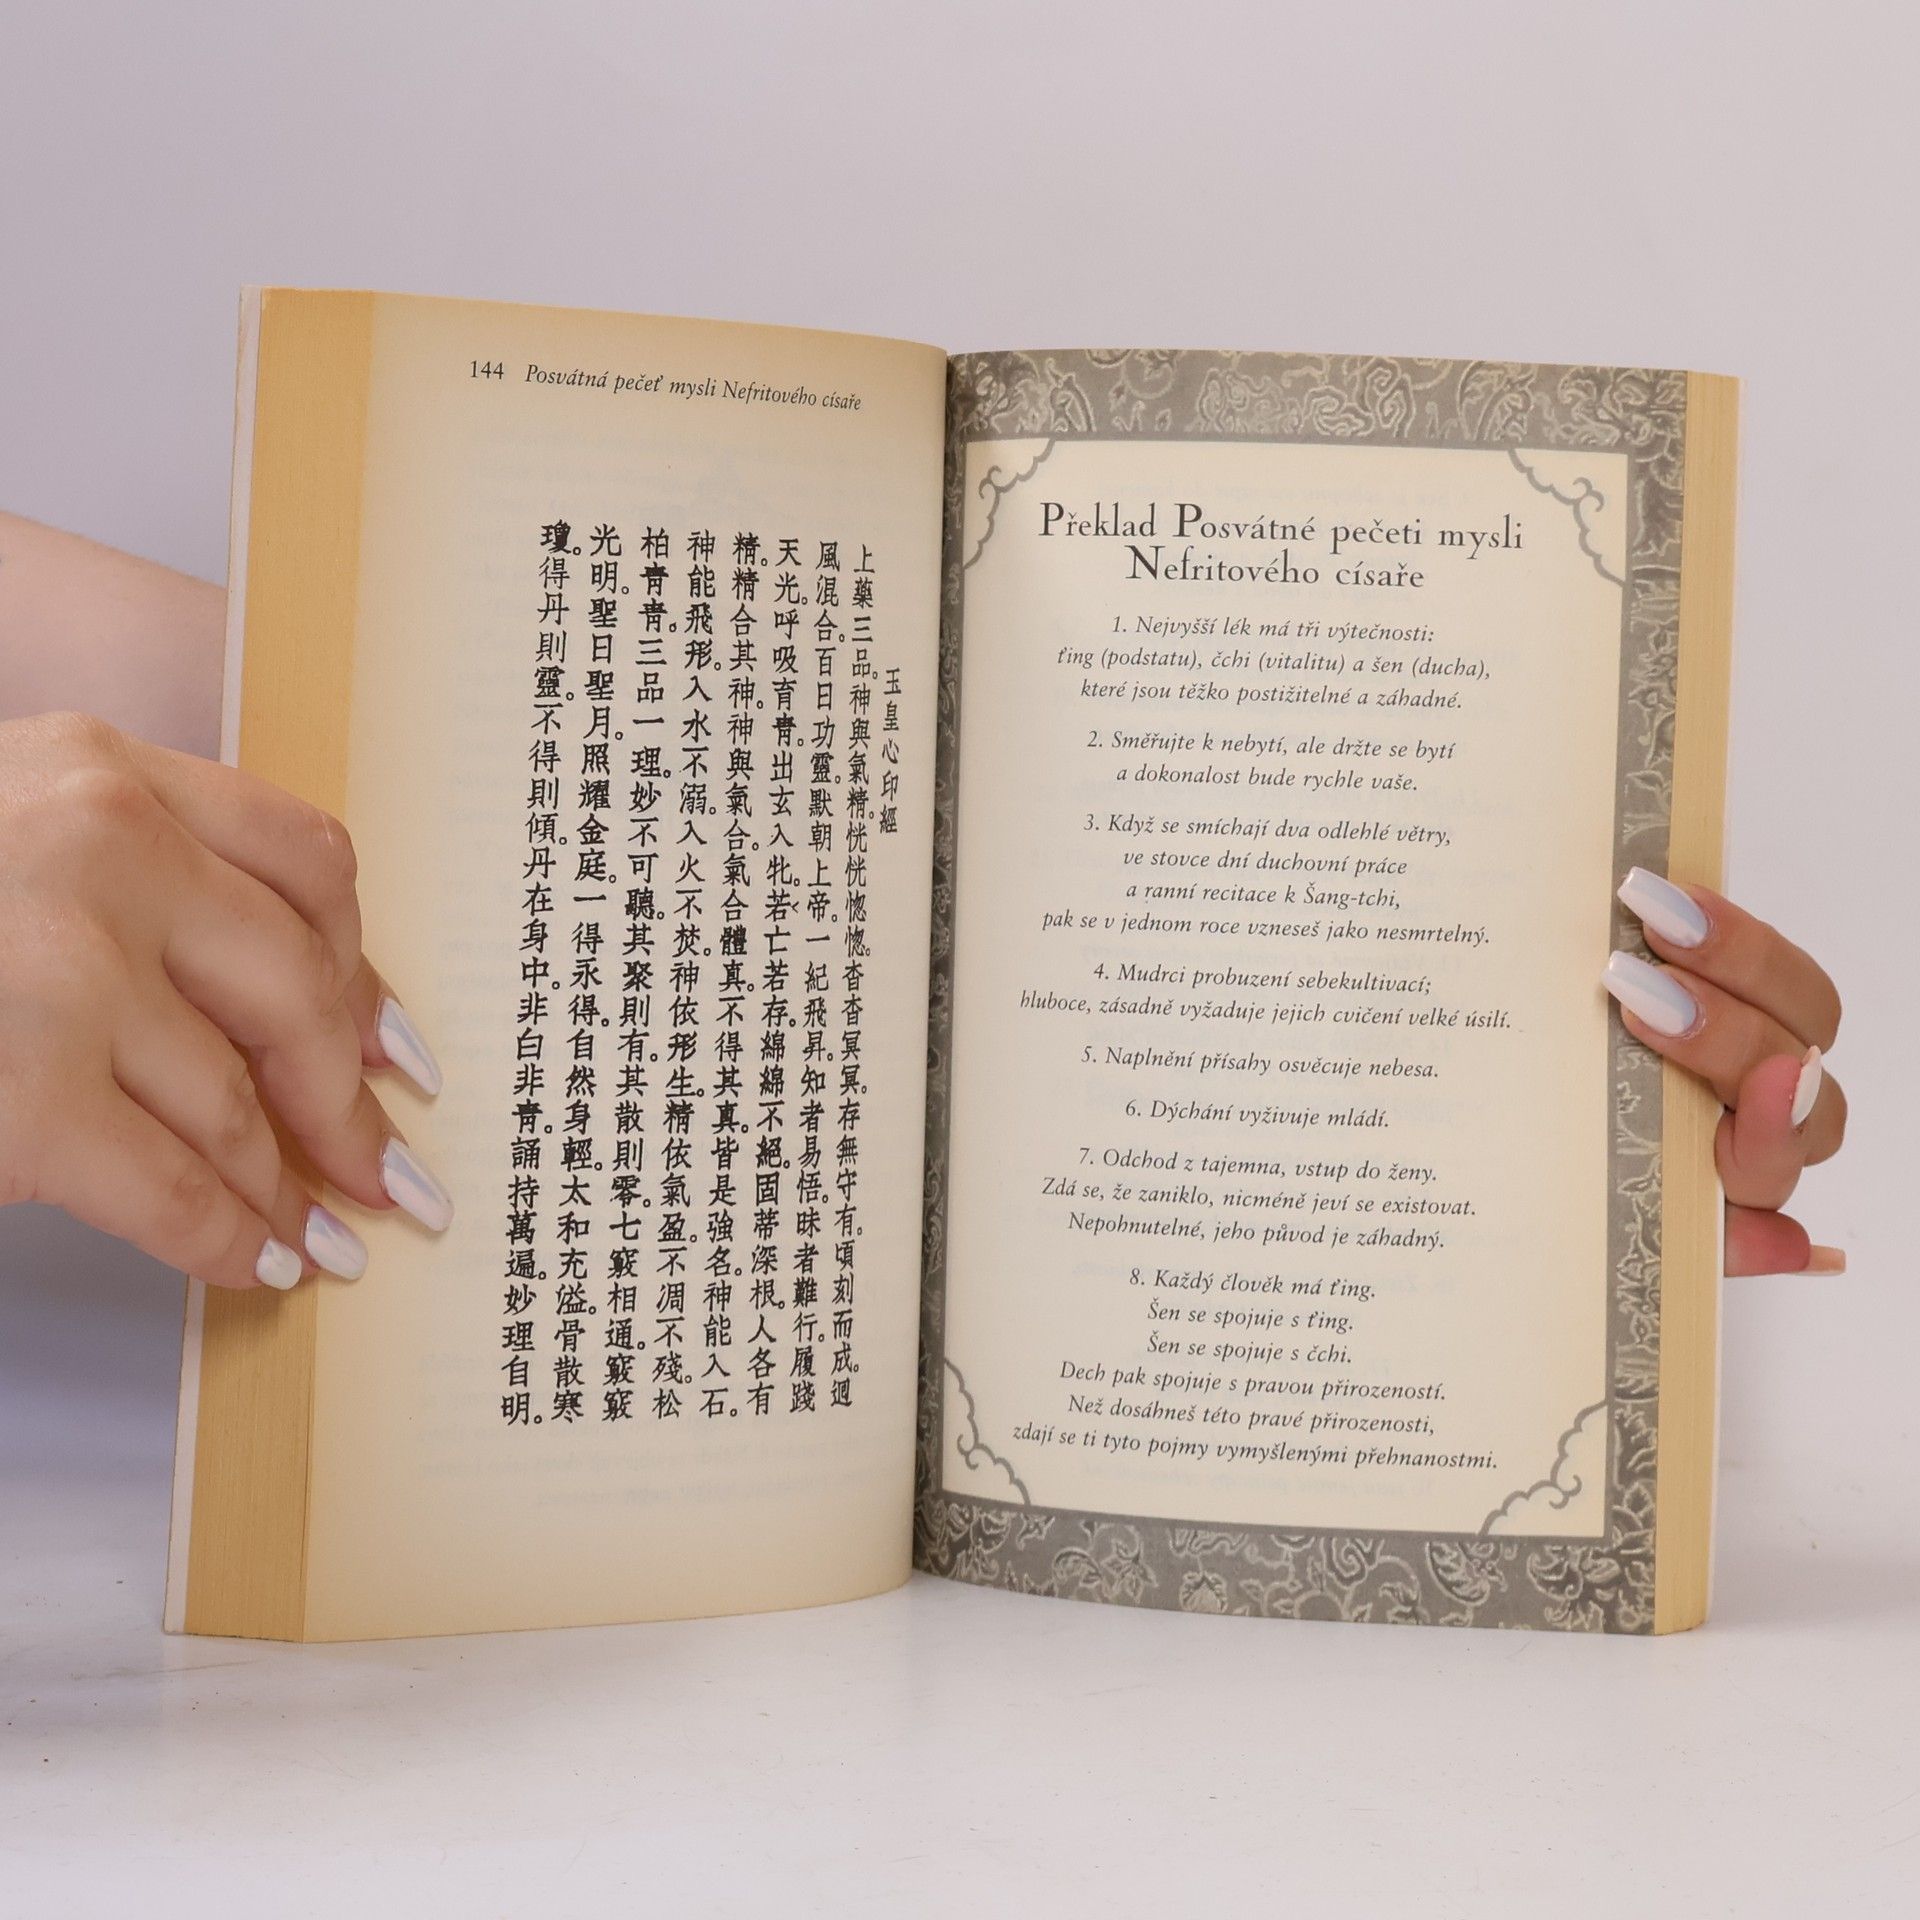 144 Posvátná pečeť mysli Nefritového císaře
玉皇心印經
上藥三品。神與氣精。恍恍惚惚。杳杳冥冥。存無守有。頃刻而成。迴
風混合。百日功靈。默朝上帝。一紀飛昇。知者易悟。昧者難行。履踐
天光。呼吸育靑。出玄入牝。若亡若存。綿綿不絕。固蒂深根。人各有
精。精合其神。神與氣合。氣合體真。不得其真。皆是強名。神能入石。
神能飛形。入水不溺。入火不焚。神依形生。精依氣盈。不凋不殘。松
柏靑靑。三品一理。妙不可聽。其聚則有。其散則零。七竅相通。竅竅
光明。聖日聖月。照耀金庭。一得永得。自然身輕。太和充溢。骨散寒
瓊。得丹則靈。不得則傾。丹在身中。非白非靑。誦持萬遍。妙理自明。
Překlad Posvátné pečeti mysli
Nefritového císaře
1. Nejvyšší lék má tři výtečnosti:
ťing (podstatu), čchi (vitalitu) a šen (ducha),
které jsou těžko postižitelné a záhadné.
2. Směřujte k nebytí, ale držte se bytí
a dokonalost bude rychle vaše.
3. Když se smíchají dva odlehlé větry,
ve stovce dní duchovní práce
a ranní recitace k Šang-tchi,
pak se v jednom roce vzneseš jako nesmrtelný.
4. Mudrci probuzení sebekultivací;
hluboce, zásadně vyžaduje jejich cvičení velké úsilí.
5. Naplnění přísahy osvěcuje nebesa.
6. Dýchání vyživuje mládí.
7. Odchod z tajemna, vstup do ženy.
Zdá se, že zaniklo, nicméně jeví se existovat.
Nepohnutelné, jeho původ je záhadný.
8. Každý člověk má ťing.
Šen se spojuje s ťing.
Šen se spojuje s čchi.
Dech pak spojuje s pravou přirozeností.
Než dosáhneš této pravé přirozenosti,
zdají se ti tyto pojmy vymyšlenými přehnanostmi.